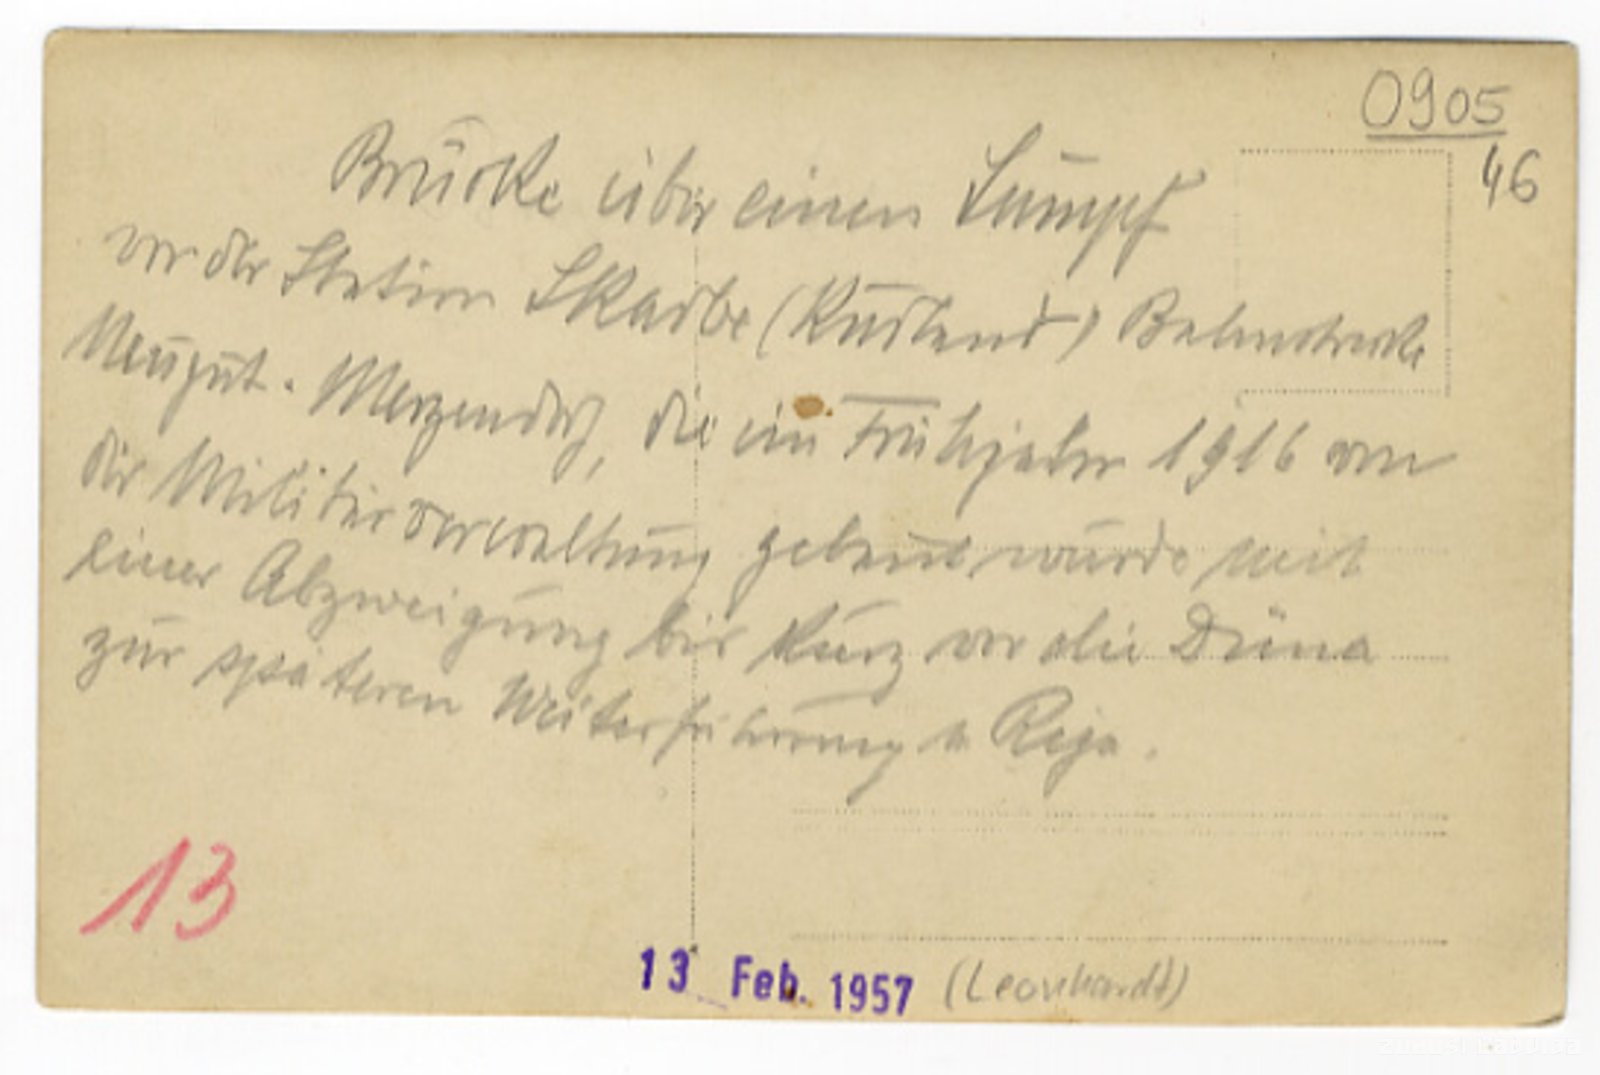 0905
46
Brücke über einen Sumpf
vor der Station Skarbe (Kurland) Bahnstrecke
Neugut - Merzendorf, die im Frühjahr 1916 von
der Militärverwaltung gebaut wurde mit
einer Abzweigung bis kurz vor die Düna
zur späteren Weiterführung n. Riga.
13
13 Feb. 1957 (Leonhardt)